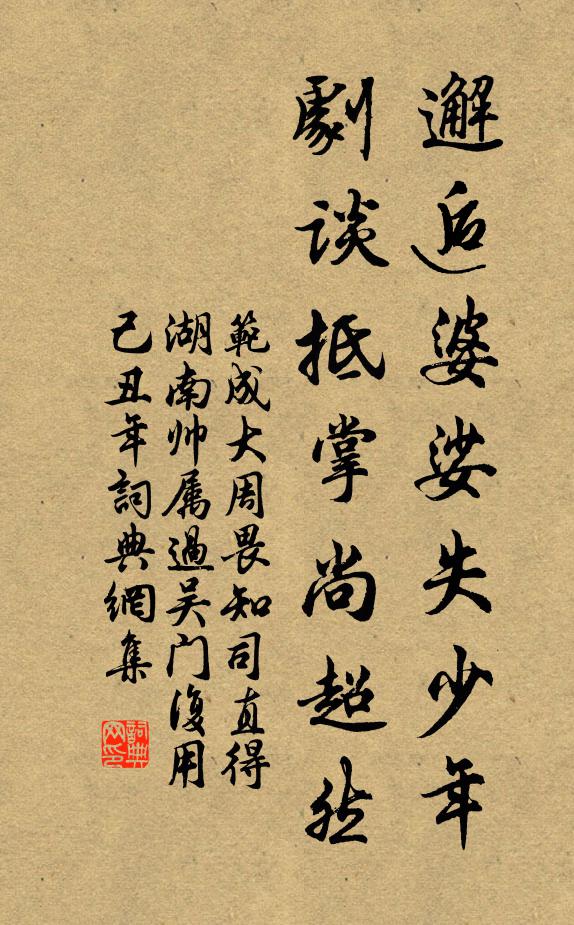 邂逅婆娑失少年
劇谈抵掌尚超然
範成大周畏知司直得
湖南帅属過吴门復用
己丑年詞典網集
詞典网印